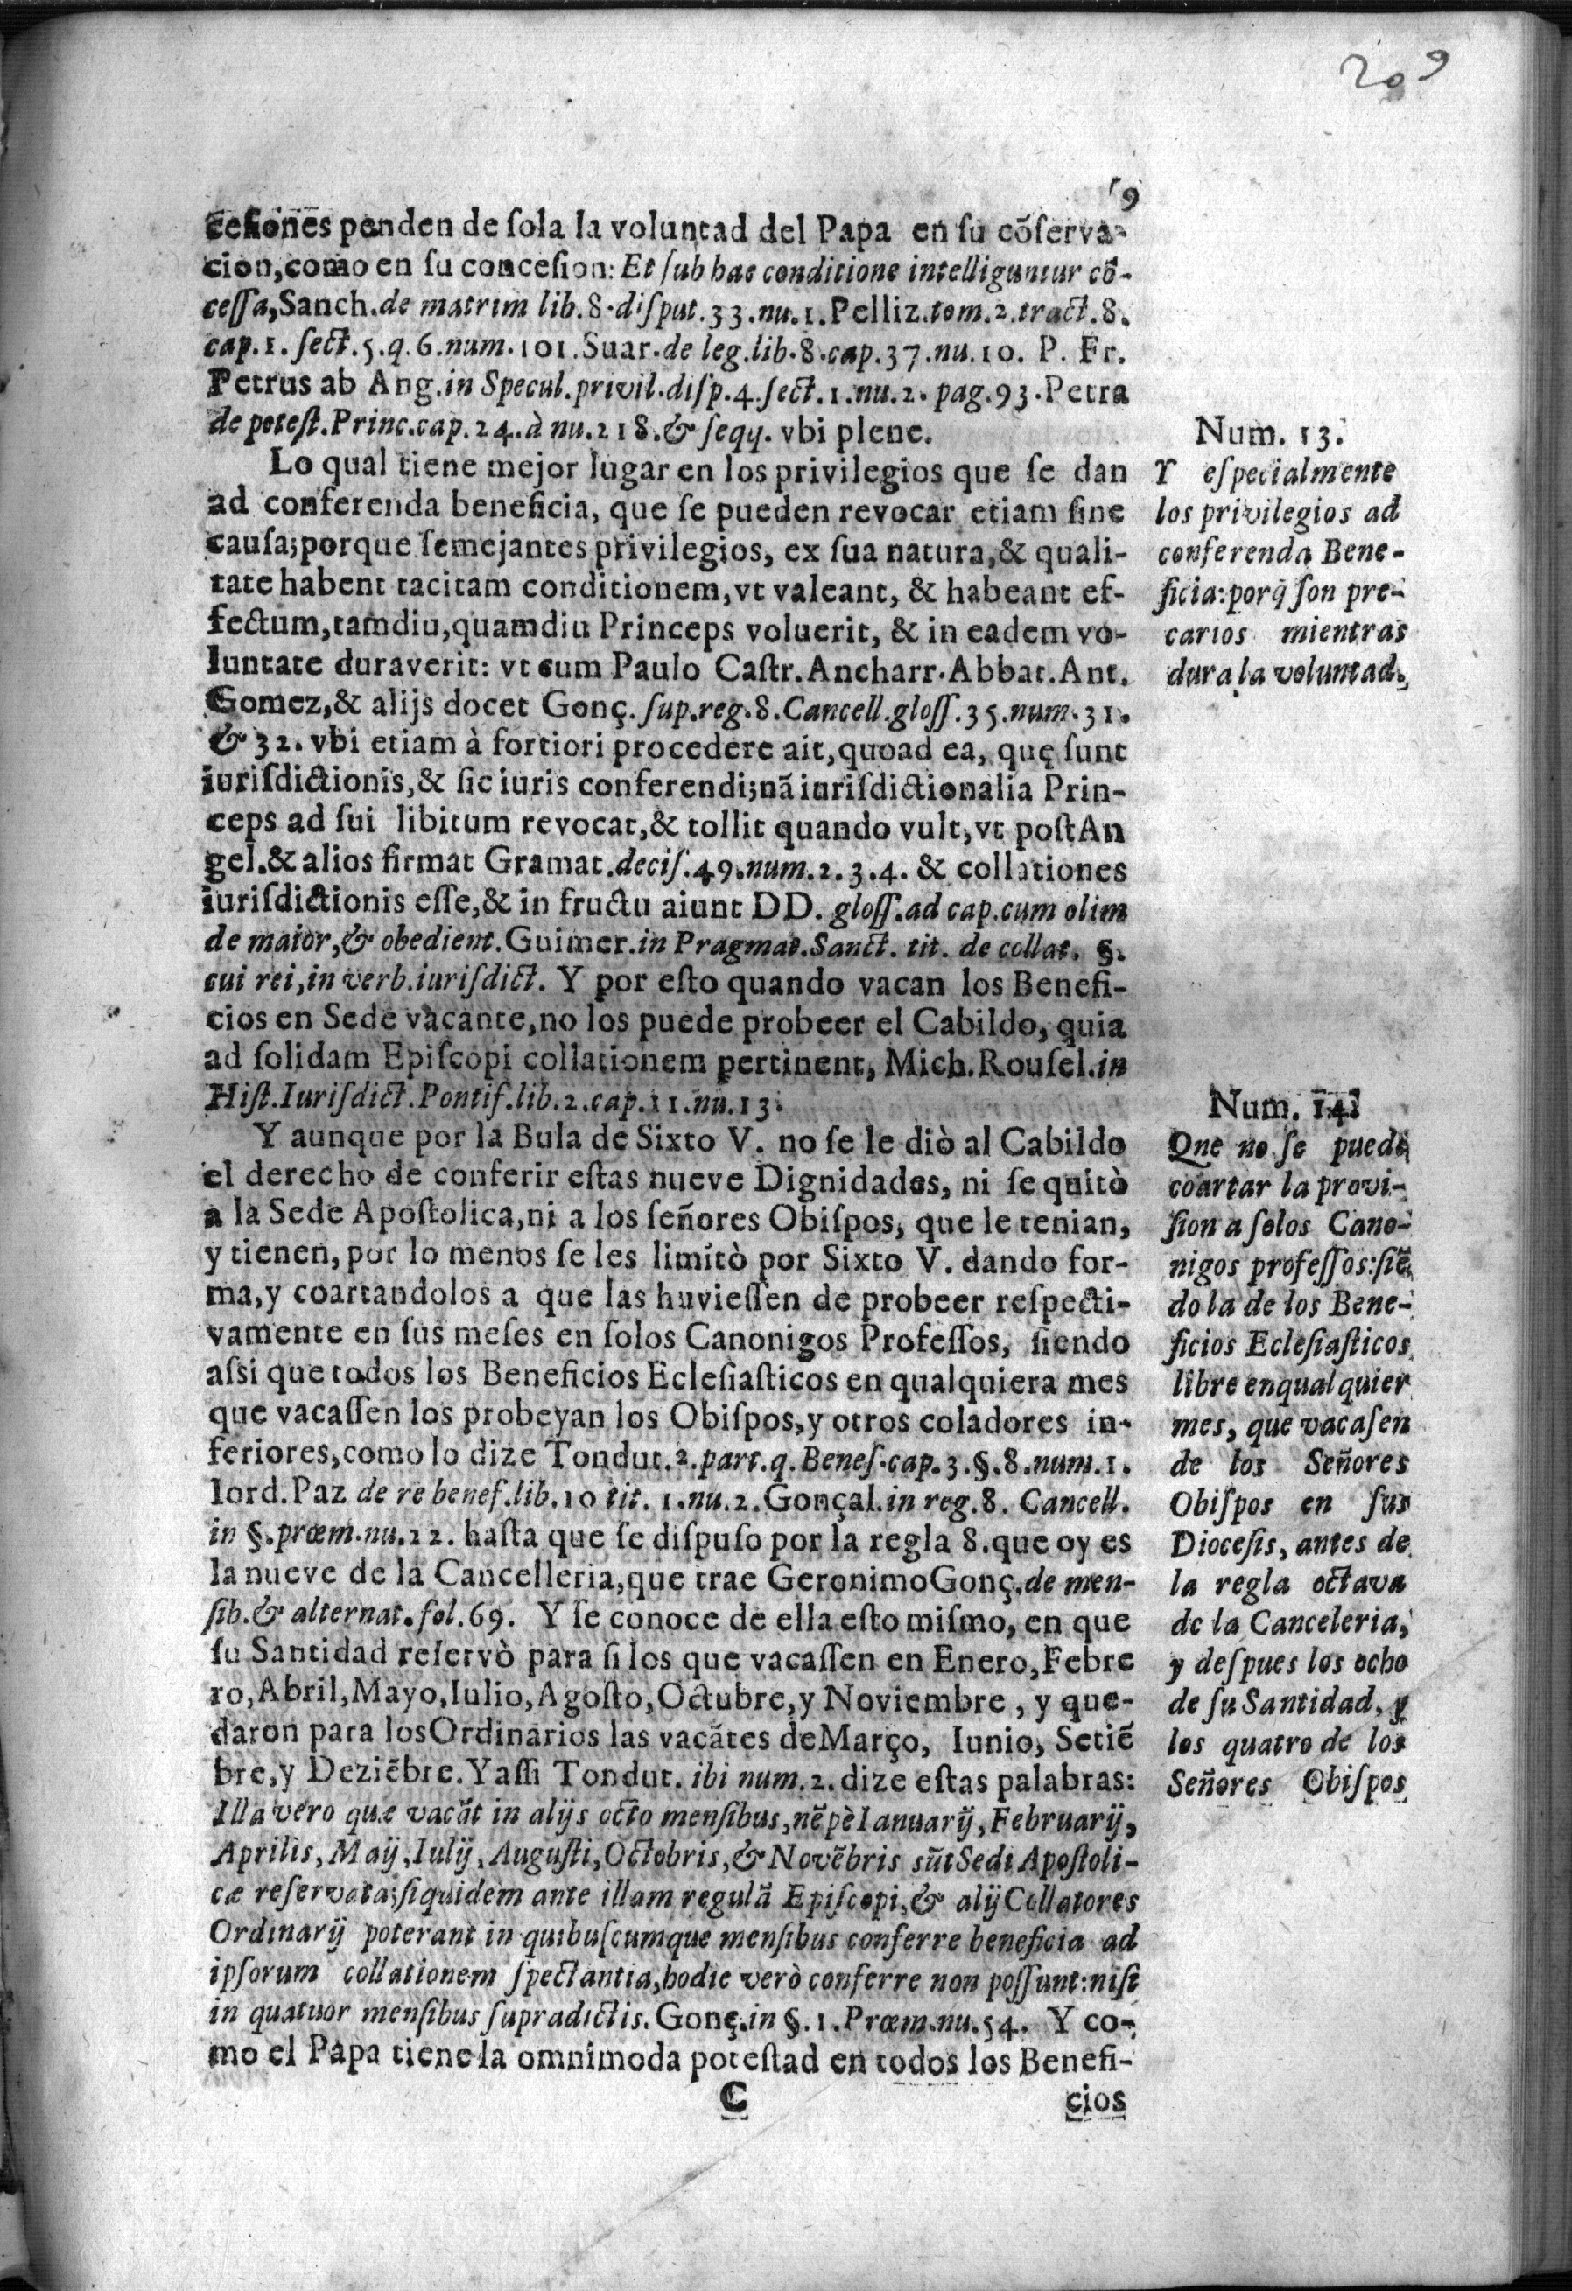 209
9
cesiones penden de ſola la voluntad del Papa en ſu cõſerva-
cion, como en ſu concesion: Et ſub hac conditione intelliguntur cõ-
ceſſa, Sanch. de matrim lib. 8. diſput. 33. nu. 1. Pelliz. tom. 2. tract. 8.
cap. 1. ſect. 5. q. 6. num. 101. Suar. de leg. lib. 8. cap. 37. nu. 10. P. Fr.
Petrus ab Ang. in Specul. privil. diſp. 4. ſect. 1. nu. 2. pag. 93. Petra
de poteſt. Princ. cap. 24. à nu. 218. & ſeqq. vbi plene.
Lo qual tiene mejor lugar en los privilegios que ſe dan
ad conferenda beneficia, que ſe pueden revocar etiam ſine
cauſa; porque ſemejantes privilegios, ex ſua natura, & quali-
tate habent tacitam conditionem, vt valeant, & habeant ef-
fectum, tamdiu, quamdiu Princeps voluerit, & in eadem vo-
luntate duraverit: vt cum Paulo Caſtr. Ancharr. Abbat. Ant.
Gomez, & alijs docet Gonç. ſup. reg. 8. Cancell. gloſſ. 35. num. 31.
& 32. vbi etiam à fortiori procedere ait, quoad ea, quę ſunt
iuriſdictionis, & ſic iuris conferendi; nã iuriſdictionalia Prin-
ceps ad ſui libitum revocat, & tollit quando vult, vt poſt An
gel. & alios firmat Gramat. deciſ. 49. num. 2. 3. 4. & collationes
iuriſdictionis eſſe, & in fructu aiunt DD. gloſſ. ad cap. cum olim
de maior, & obedient. Guimer. in Pragmat. Sanct. tit. de collat. §.
cui rei, in verb. iuriſdict. Y por eſto quando vacan los Benefi-
cios en Sede vacante, no los puede probeer el Cabildo, quia
ad ſolidam Epiſcopi collationem pertinent, Mich. Rouſel. in
Hiſt. Iuriſdict. Pontif. lib. 2. cap. 11. nu. 13.
Y aunque por la Bula de Sixto V. no ſe le diò al Cabildo
el derecho de conferir eſtas nueve Dignidades, ni ſe quitò
a la Sede Apoſtolica, ni a los ſeñores Obiſpos, que le tenian,
y tienen, por lo menos ſe les limitò por Sixto V. dando for-
ma, y coartandolos a que las huvieſſen de probeer reſpecti-
vamente en ſus meſes en ſolos Canonigos Profeſſos, ſiendo
aſsi que todos los Beneficios Ecleſiaſticos en qualquiera mes
que vacaſſen los probeyan los Obiſpos, y otros coladores in-
feriores, como lo dize Tondut. 2. part. q. Benef. cap. 3. §. 8. num. 1.
Iord. Paz de re benef. lib. 10 tit. 1. nu. 2. Gonçal. in reg. 8. Cancell.
in §. prœm. nu. 22. haſta que ſe diſpuſo por la regla 8. que oy es
la nueve de la Cancelleria, que trae Geronimo Gonç. de men-
ſib. & alternat. fol. 69. Y ſe conoce de ella eſto miſmo, en que
ſu Santidad reſervò para ſi los que vacaſſen en Enero, Febre
ro, Abril, Mayo, Iulio, Agoſto, Octubre, y Noviembre, y que-
daron para los Ordinarios las vacãtes de Março, Iunio, Setiẽ
bre, y Deziẽbre. Y aſſi Tondut. ibi num. 2. dize eſtas palabras:
Illa vero quæ vacãt in alijs octo menſibus, nẽpè Ianuarij, Februarij,
Aprilis, Maij, Iulij, Auguſti, Octobris, & Novẽbris sũt Sedi Apoſtoli-
cæ reſervata; ſiquidem ante illam regulã Epiſcopi, & alij Collatores
Ordinarij poterant in quibuſcumque menſibus conferre beneficia ad
ipſorum collationem ſpectantia, hodie verò conferre non poſſunt: niſi
in quatuor menſibus ſupradictis. Gonç. in §. 1. Prœm. nu. 54. Y co-
mo el Papa tiene la omnimoda poteſtad en todos los Benefi-
C
cios
Num. 13.
Y eſpecialmente
los privilegios ad
conferenda Bene-
ficia: porq̃ ſon pre-
carios mientras
dura la voluntad.
Num. 14.
Que no ſe puede
coartar la provi-
ſion a ſolos Cano-
nigos profeſſos: ſiẽ
do la de los Bene-
ficios Ecleſiaſticos
libre en qualquier
mes, que vacaſen
de los Señores
Obiſpos en ſus
Dioceſis, antes de
la regla octava
de la Canceleria,
y deſpues los ocho
de ſu Santidad, y
los quatro de los
Señores Obiſpos